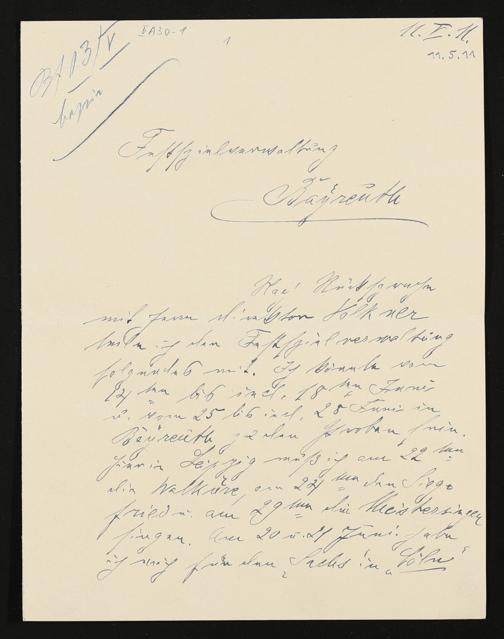 II A 30-1
1
11. V. 11.
11.5.11
Festspielverwaltung
zu
Bayreuth
Nach Rücksprache
mit Herrn Direktor Volkner
teile ich der Festspielverwaltung
folgendes mit. Ich könnte vom
12ten bis incl. 18ten Juni
u. vom 25 bis incl. 28 Juni in
Bayreuth zu den Proben sein.
Hier in Leipzig muß ich am 22ten
die Walküre, am 24ten den Sieg-
fried u. am 29ten die Meistersinger
singen. Am 20 u. 21 Juni habe
ich mich für den „Sachs" in „Cöln"